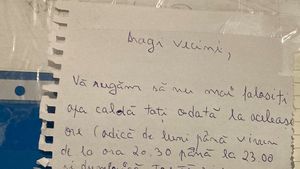 Dragi vecini,
Vă rugăm să nu mai folosiți
apa caldă toți odată la aceleași
ore (adică de luni până vineri
de la ora 20.30 până la 23.00
și